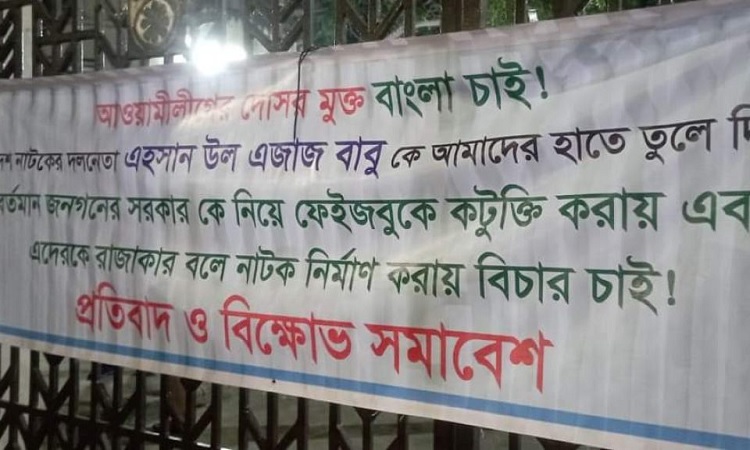 আওয়ামীলীগের দোসর মুক্ত বাংলা চাই!
নাটকের দলনেতা এহসান উল এজাজ বাবু কে আমাদের হাতে তুলে
বর্তমান জনগনের সরকার কে নিয়ে ফেইজবুকে কটুক্তি করায় এব
এদেরকে রাজাকার বলে নাটক নির্মাণ করায় বিচার চাই!
প্রতিবাদ ও বিক্ষোভ সমাবেশ